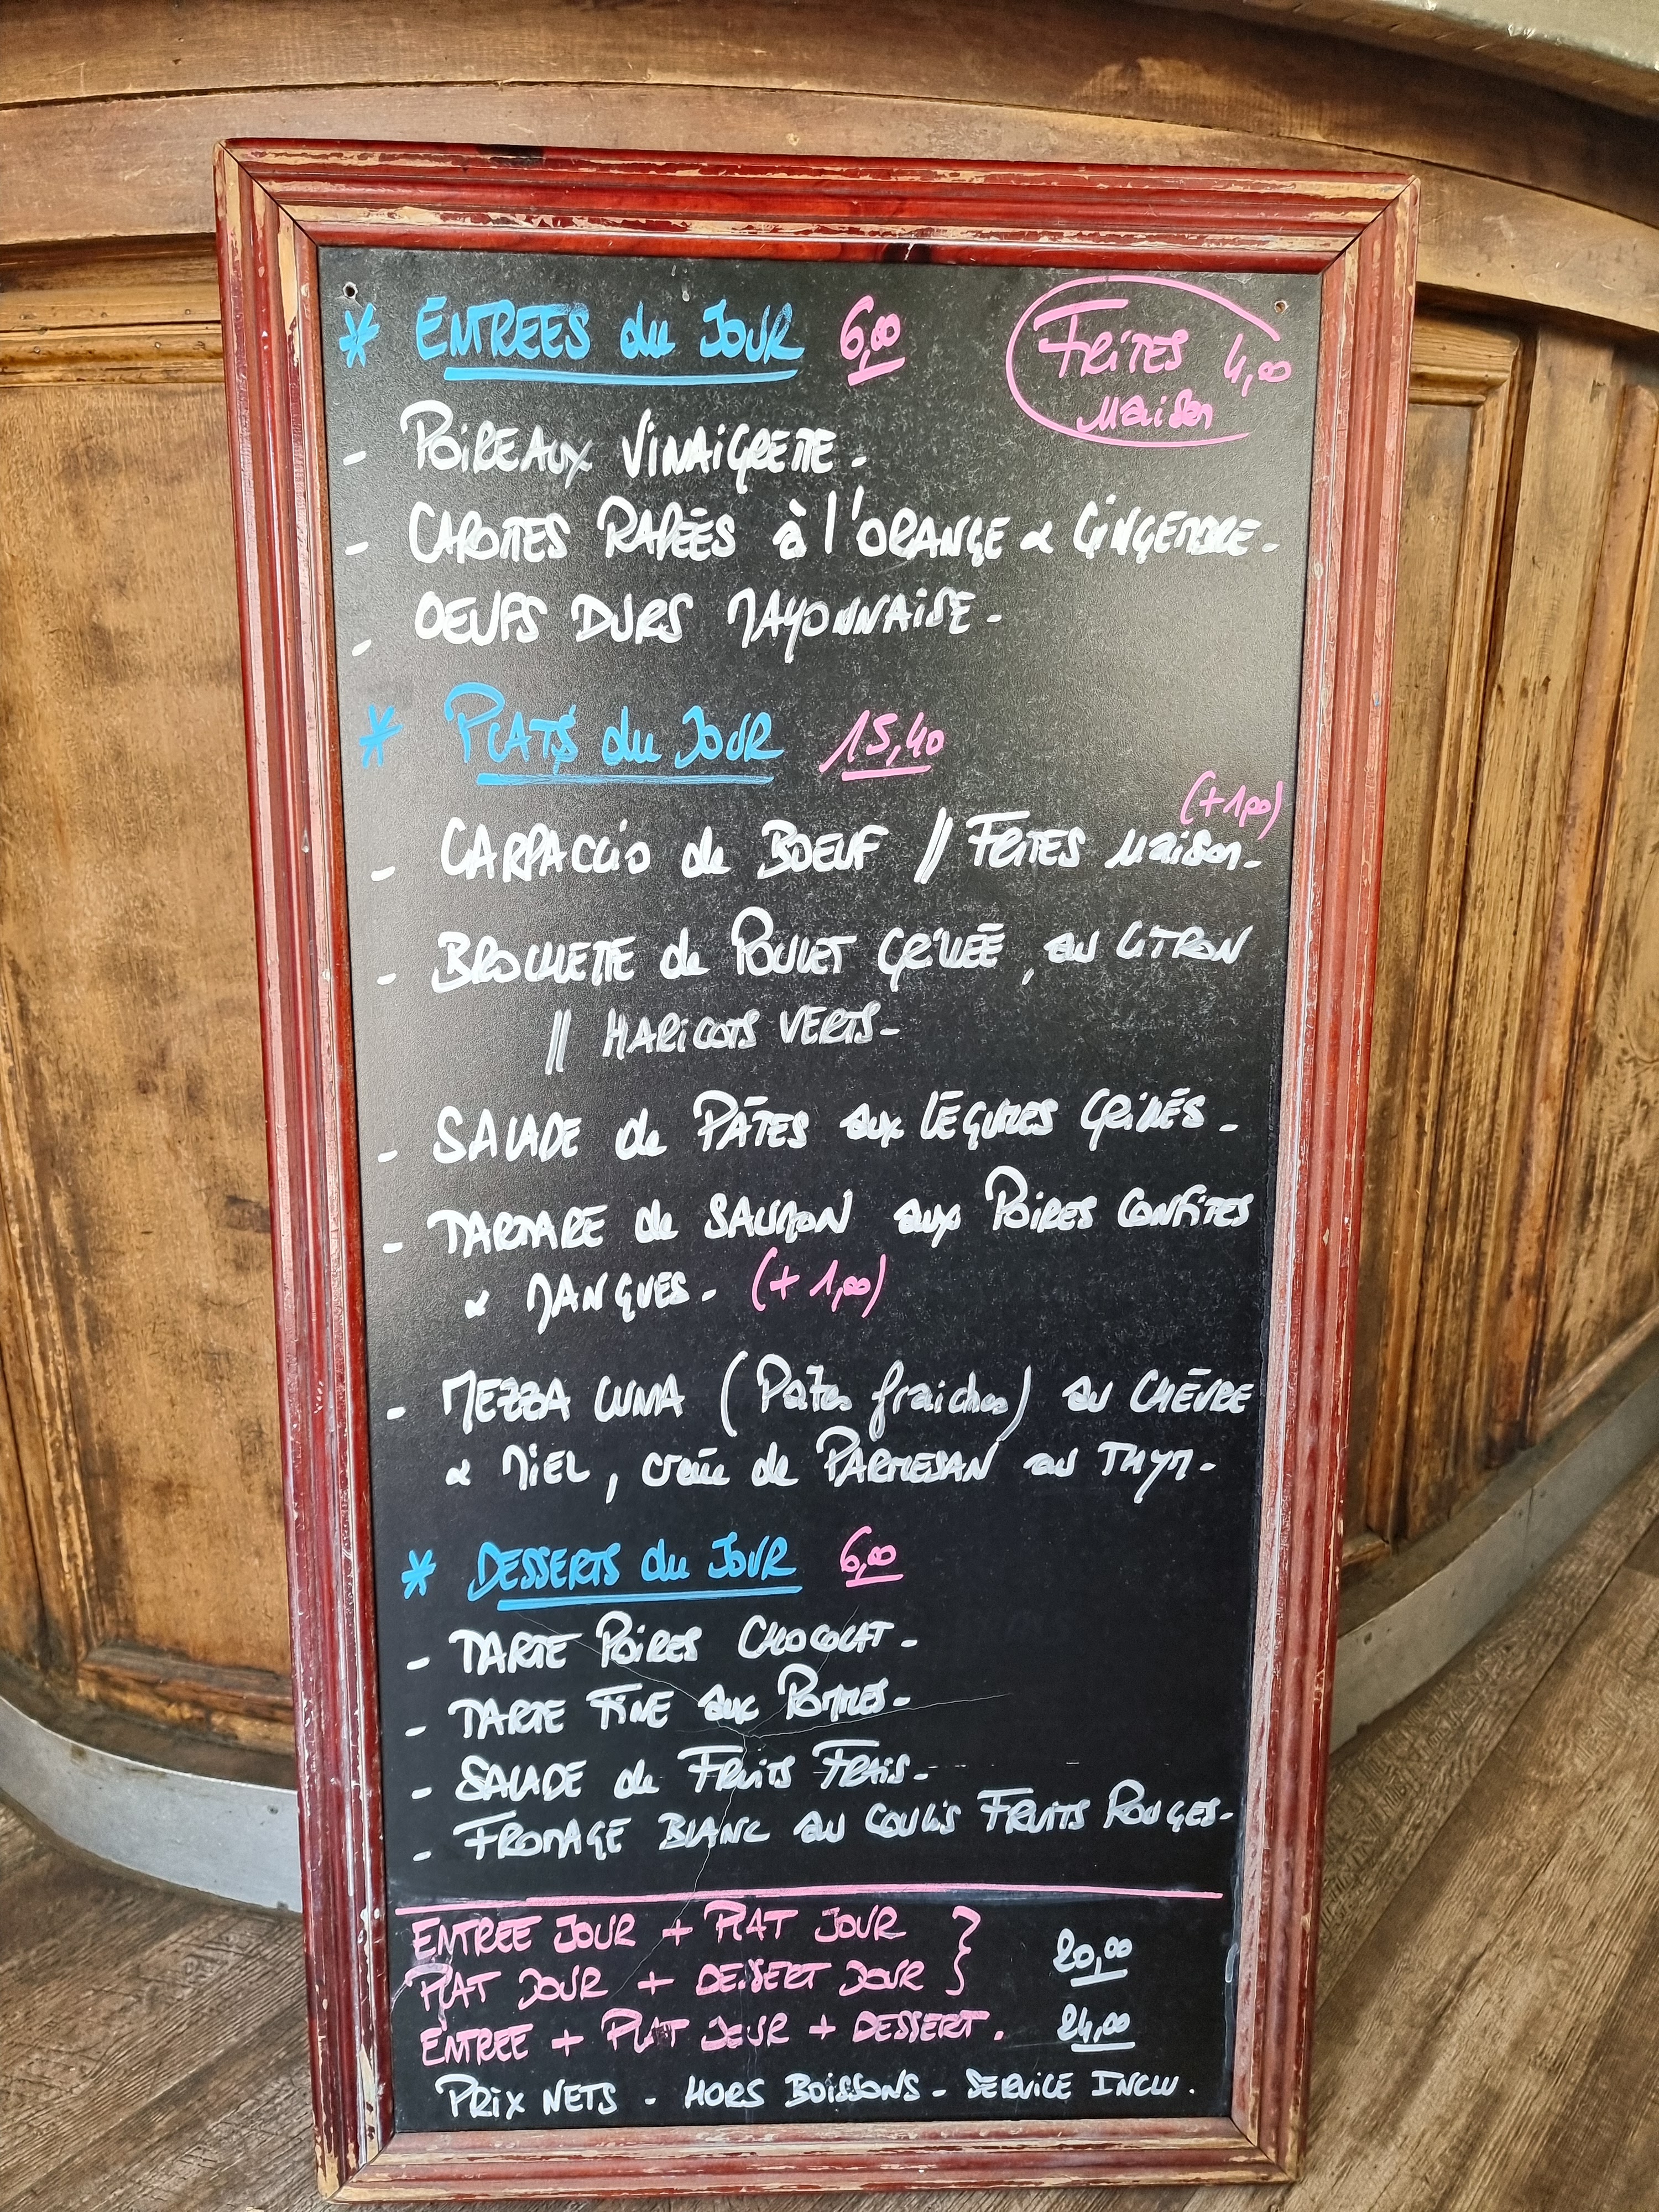 * ENTREES du JOUR 6,00
FRITES 4,00
Maison
- POIREAUX VINAIGRETTE.
- CAROTTES RAPÉES à l'ORANGE & GINGEMBRE.
- OEUFS DURS MAYONNAISE.
* PLATS du JOUR 15,40
(+1,00)
- CARPACCIO de BOEUF // FRITES Maison.
- BROCHETTE de POULET GRILLÉE, au CITRON
// HARICOTS VERTS.
- SALADE de PÂTES aux LÉGUMES GRILLÉS.
- TARTARE de SAUMON aux POIRES CONFITES
& MANGUES. (+1,00)
- MEZZA LUNA (Pâtes fraiches) au CHÈVRE
& MIEL, crème de PARMESAN au THYM.
* DESSERTS du JOUR 6,00
- TARTE POIRES CHOCOLAT.
- TARTE FINE aux POMMES.
- SALADE de FRUITS FRAIS.
- FROMAGE BLANC au COULIS FRUITS ROUGES.
ENTREE JOUR + PLAT JOUR }
PLAT JOUR + DESSERT JOUR } 20,00
ENTREE + PLAT JOUR + DESSERT. 24,00
PRIX NETS - HORS BOISSONS - SERVICE INCLU.